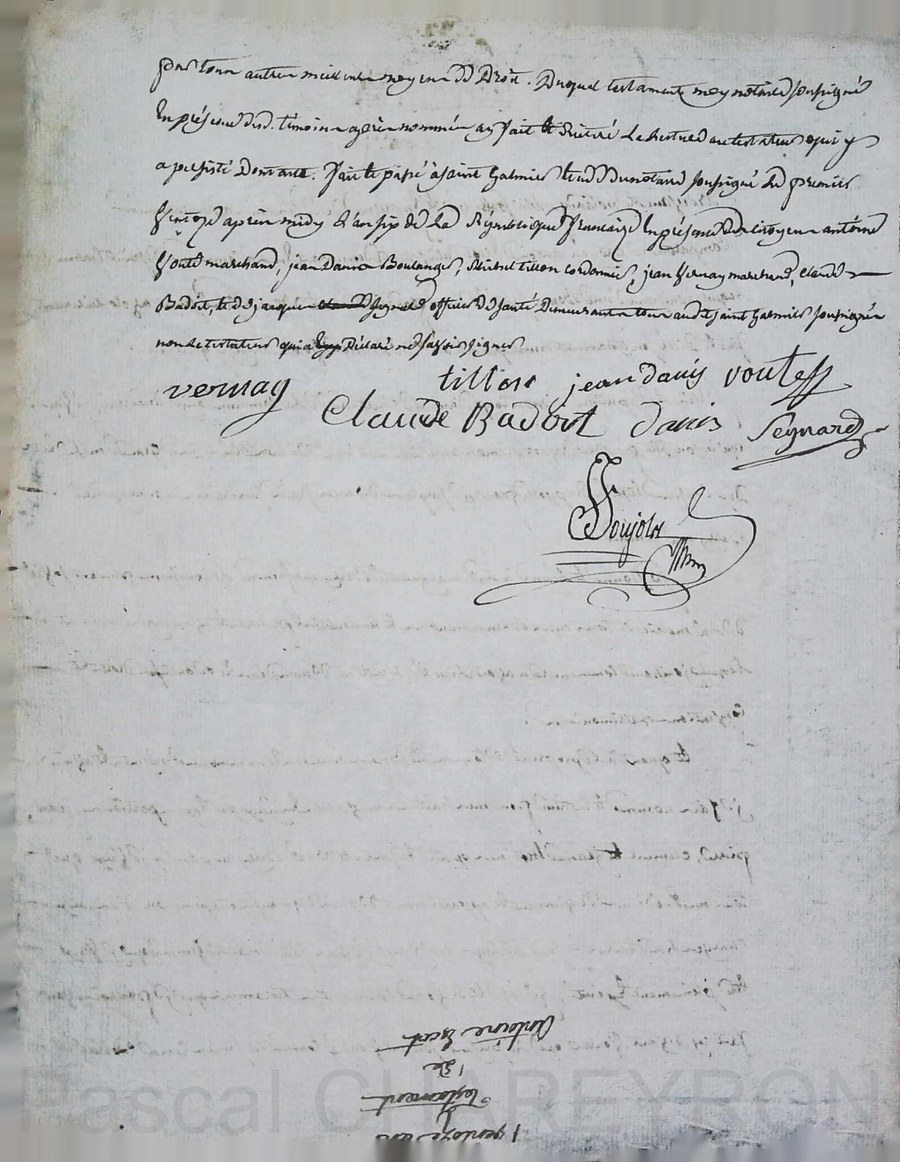 tout autre meilleur moyen de Droit. Duquel testament moy notaire soussigné
En présence des d. témoins après nommés ay fait et Réitéré La Lecture au testateur qui y
a persisté Dont acte. fait et passé à saint Galmier étude du notaire soussigné Le premier
Ventoze après midy L'an six de La République française En présence des citoyens antoine
Voute marchand, jean Danis Boulanger, Michel tillon Cordonnier, jean Vernay marchand, Claude
Badoit, et jacques Seynard officier de santé Demeurant tous au dit saint Galmier soussignés
non le testateur qui a Déclaré ne sçavoir signer
vernay tillon jean danis voute
Claude Badoit danis Seynard
Poujolas
1 ventoze
Testament
De
antoine
Pascal CHAREYRON